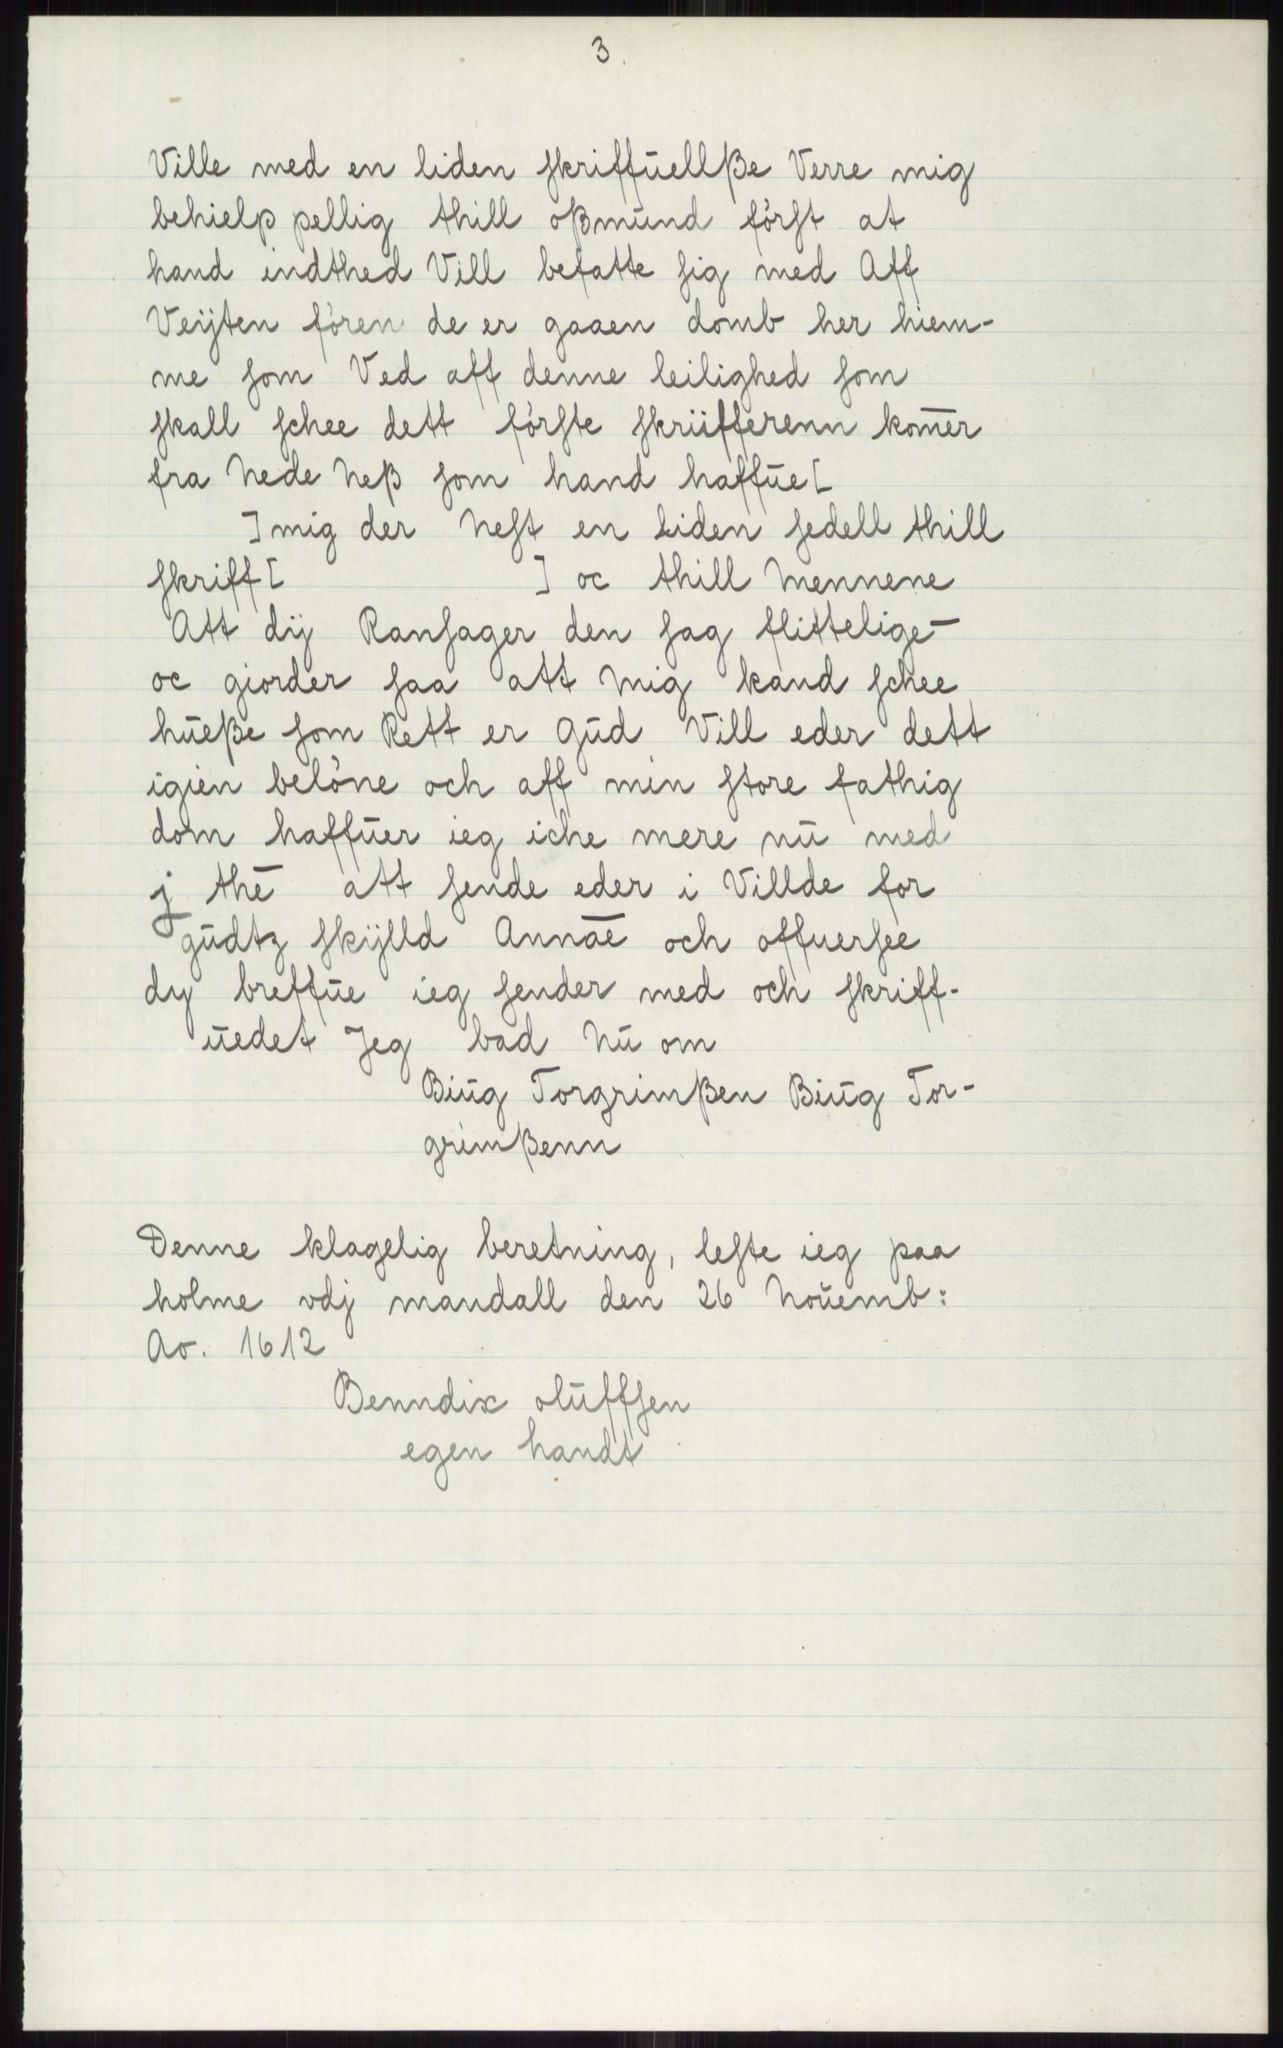 3.
Ville med en liden skriffūellße Verre mig
behielp pellig thill oßmūnd först at
hand indthed Vill befatte sig med Aff
Veÿten fören de er gaaen domb her hiem-
me som Ved aff denne leilighed som
skall schee dett förste skriifferenn kom̄er
fra Nede Neß som hand haffūe[
]mig der Nest en liden sedell thill
skriff[ ] oc thill Mennene
Att dÿ Ransager den sag flittelige-
oc giorder saa att Mig kand schee
hūeße som Rett er Gūd Vill eder dett
igien belöne och aff min store fathig
dom haffūer ieg iche mere nū med
j thē att sende eder i Villde for
gūdtz skÿlld Annāē och offuersee
dy breffūe ieg sender med och skriff-
ūedet Jeg bad Nū om
Biūg Torgrimßen Biūg Tor-
grimßenn
Denne klagelig beretning, leste ieg paa
holme vdj mandall den 26 Noūemb:
Ao. 1612
Benndix olūffsen
egen handt